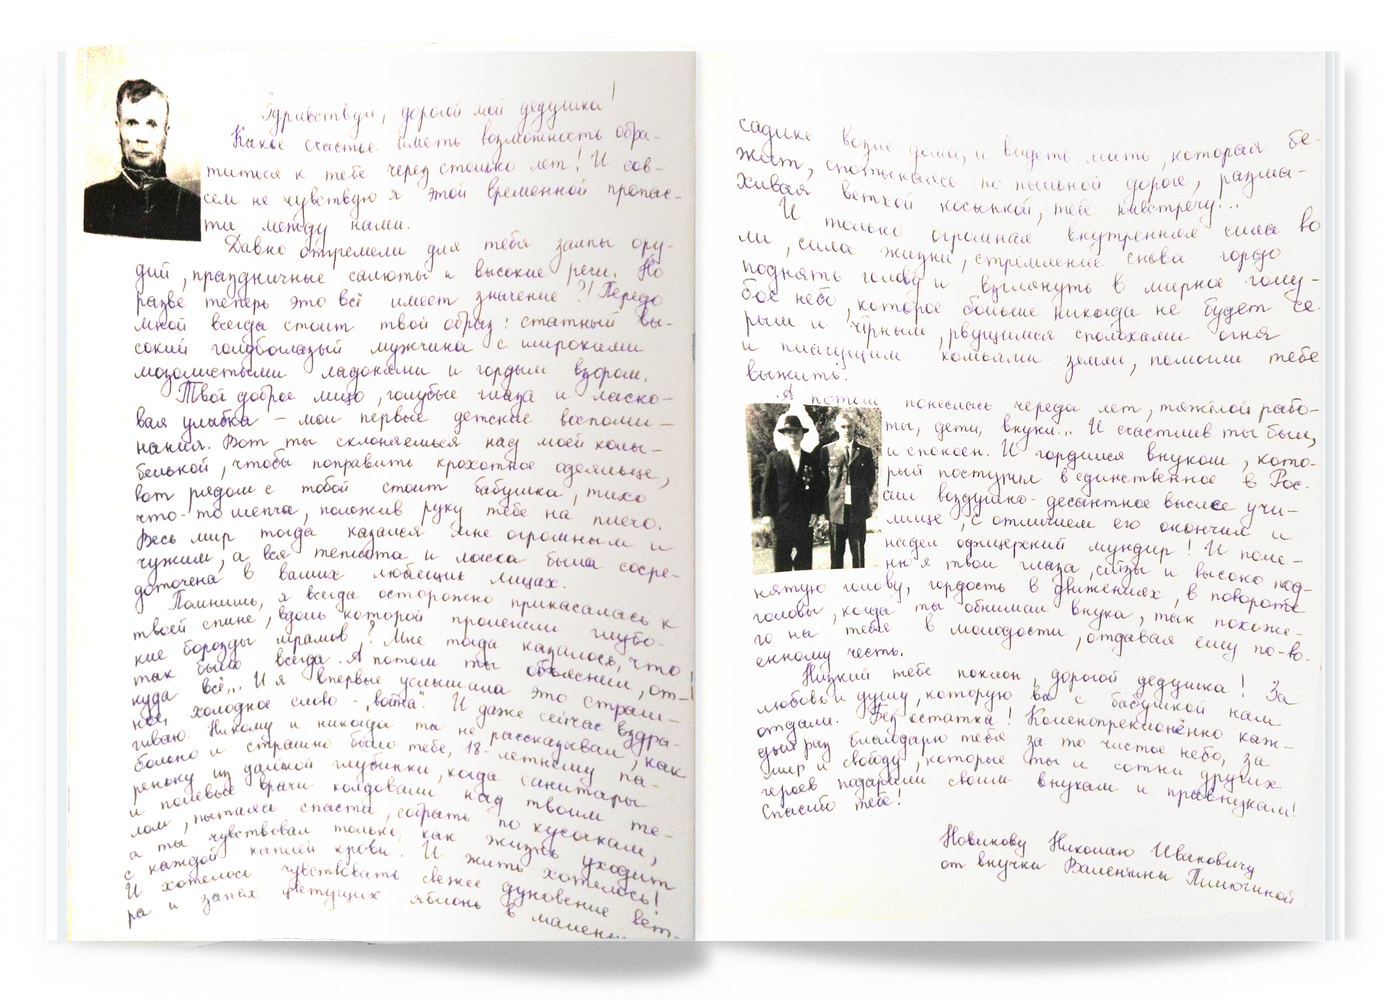 Здравствуй, дорогой мой дедушка!
Какое счастье иметь возможность обра-
титься к тебе через столько лет! И сов-
сем не чувствую я этой временной пропас-
ти между нами.
Давно отгремели для тебя залпы ору-
дий, праздничные салюты и высокие речи. Но
разве теперь это всё имеет значение?! Передо
мной всегда стоит твой образ: статный вы-
сокий голубоглазый мужчина с широкими
мозолистыми ладонями и гордым взором.
Твоё доброе лицо, голубые глаза и ласко-
вая улыбка – мои первые детские воспоми-
нания. Вот ты склоняешься над моей колы-
белькой, чтобы поправить крохотное одеяльце,
вот рядом с тобой стоит бабушка, тихо
что-то шепча, положив руку тебе на плечо.
Весь мир тогда казался мне огромным и
чужим, а вся теплота и ласка была сосре-
доточена в ваших любящих лицах.
Помнишь, я всегда осторожно прикасалась к
твоей спине, вдоль которой пролегли глубо-
кие борозды шрамов? Мне тогда казалось, что
так было всегда. А потом ты объяснил, от-
куда всё... И я впервые услышала это страш-
ное, холодное слово - "война". И даже сейчас вздра-
гиваю. Никому и никогда ты не рассказывал, как
больно и страшно было тебе, 18-летнему па-
реньку из далёкой глубинки, когда санитары
и полевые врачи колдовали над твоим те-
лом, пытаясь спасти, собрать по кусочкам,
а ты чувствовал только, как жизнь уходит
с каждой каплей крови. И жить хотелось!
И хотелось чувствовать свежее дуновение вет-
ра и запах цветущих яблонь в
садике возле дома, и видеть мать, которая бе-
жит, спотыкаясь по пыльной дороге, разма-
хивая ветхой косынкой, тебе навстречу...
И только огромная внутренняя сила во
ли, сила жизни, стремление снова гордо
поднять голову и взглянуть в мирное голу-
бое небо, которое больше никогда не будет се-
рым и чёрным, рвущимся сполохами огня
и плачущим комьями земли, помогли тебе
выжить.
А потом понеслась череда лет, тяжёлой рабо-
ты, дети, внуки... И счастлив ты был,
и спокоен. И гордился внуком, кото-
рый поступил в единственное в Рос-
сии воздушно-десантное высшее учи-
лище, с отличием его окончил и
надел офицерский мундир! И пом-
ню я твои глаза, слёзы и высоко под-
нятую голову, гордость в движениях, в повороте
головы, когда ты обнимал внука, так похоже-
го на тебя в молодости, отдавая ему по-во-
енному честь.
Низкий тебе поклон, дорогой дедушка! За
любовь и душу, которую вы с бабушкой нам
отдали. Без остатка! Коленопреклонённо каж-
дый раз благодарю тебя за то чистое небо, за
мир и свободу, которые ты и сотни других
героев подарили своим внукам и правнукам!
Спасибо тебе!
Новикову Николаю Ивановичу
от внучки Валентины Пилюгиной